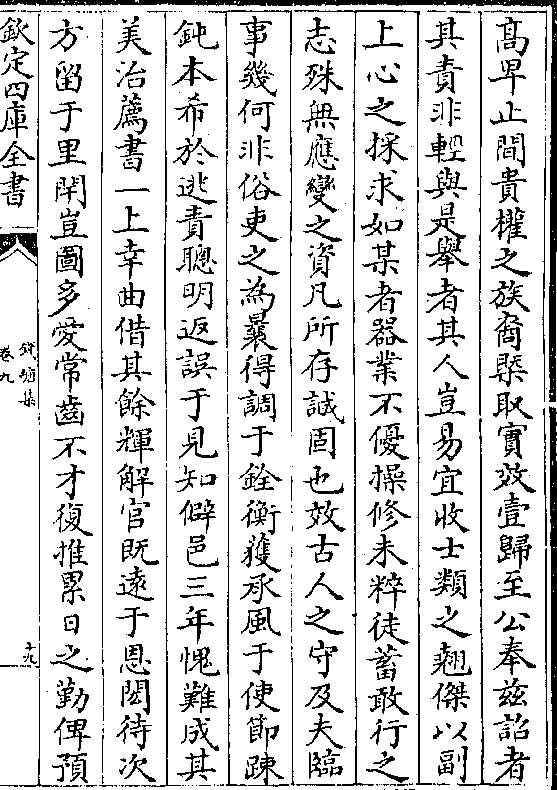 髙卑止間貴權之族裔槩取實效壹歸至公奉兹詔者
其責非輕與是舉者其人豈易宜收士類之翹傑以副
上心之採求如某者器業不優操修未粹徒蓄敢行之
志殊無應變之資凡所存誠固也效古人之守及夫臨
事幾何非俗吏之為曩得調于銓衡獲承風于使節踈
鈍本希於逃責聰明返誤于見知僻邑三年愧難成其
美治薦書一上幸曲借其餘輝解官既遠于恩閎待次
方留于里閈豈圖多愛常齒不才復推累日之勤俾預
欽定四庫全書
錢塘集
卷九
十九